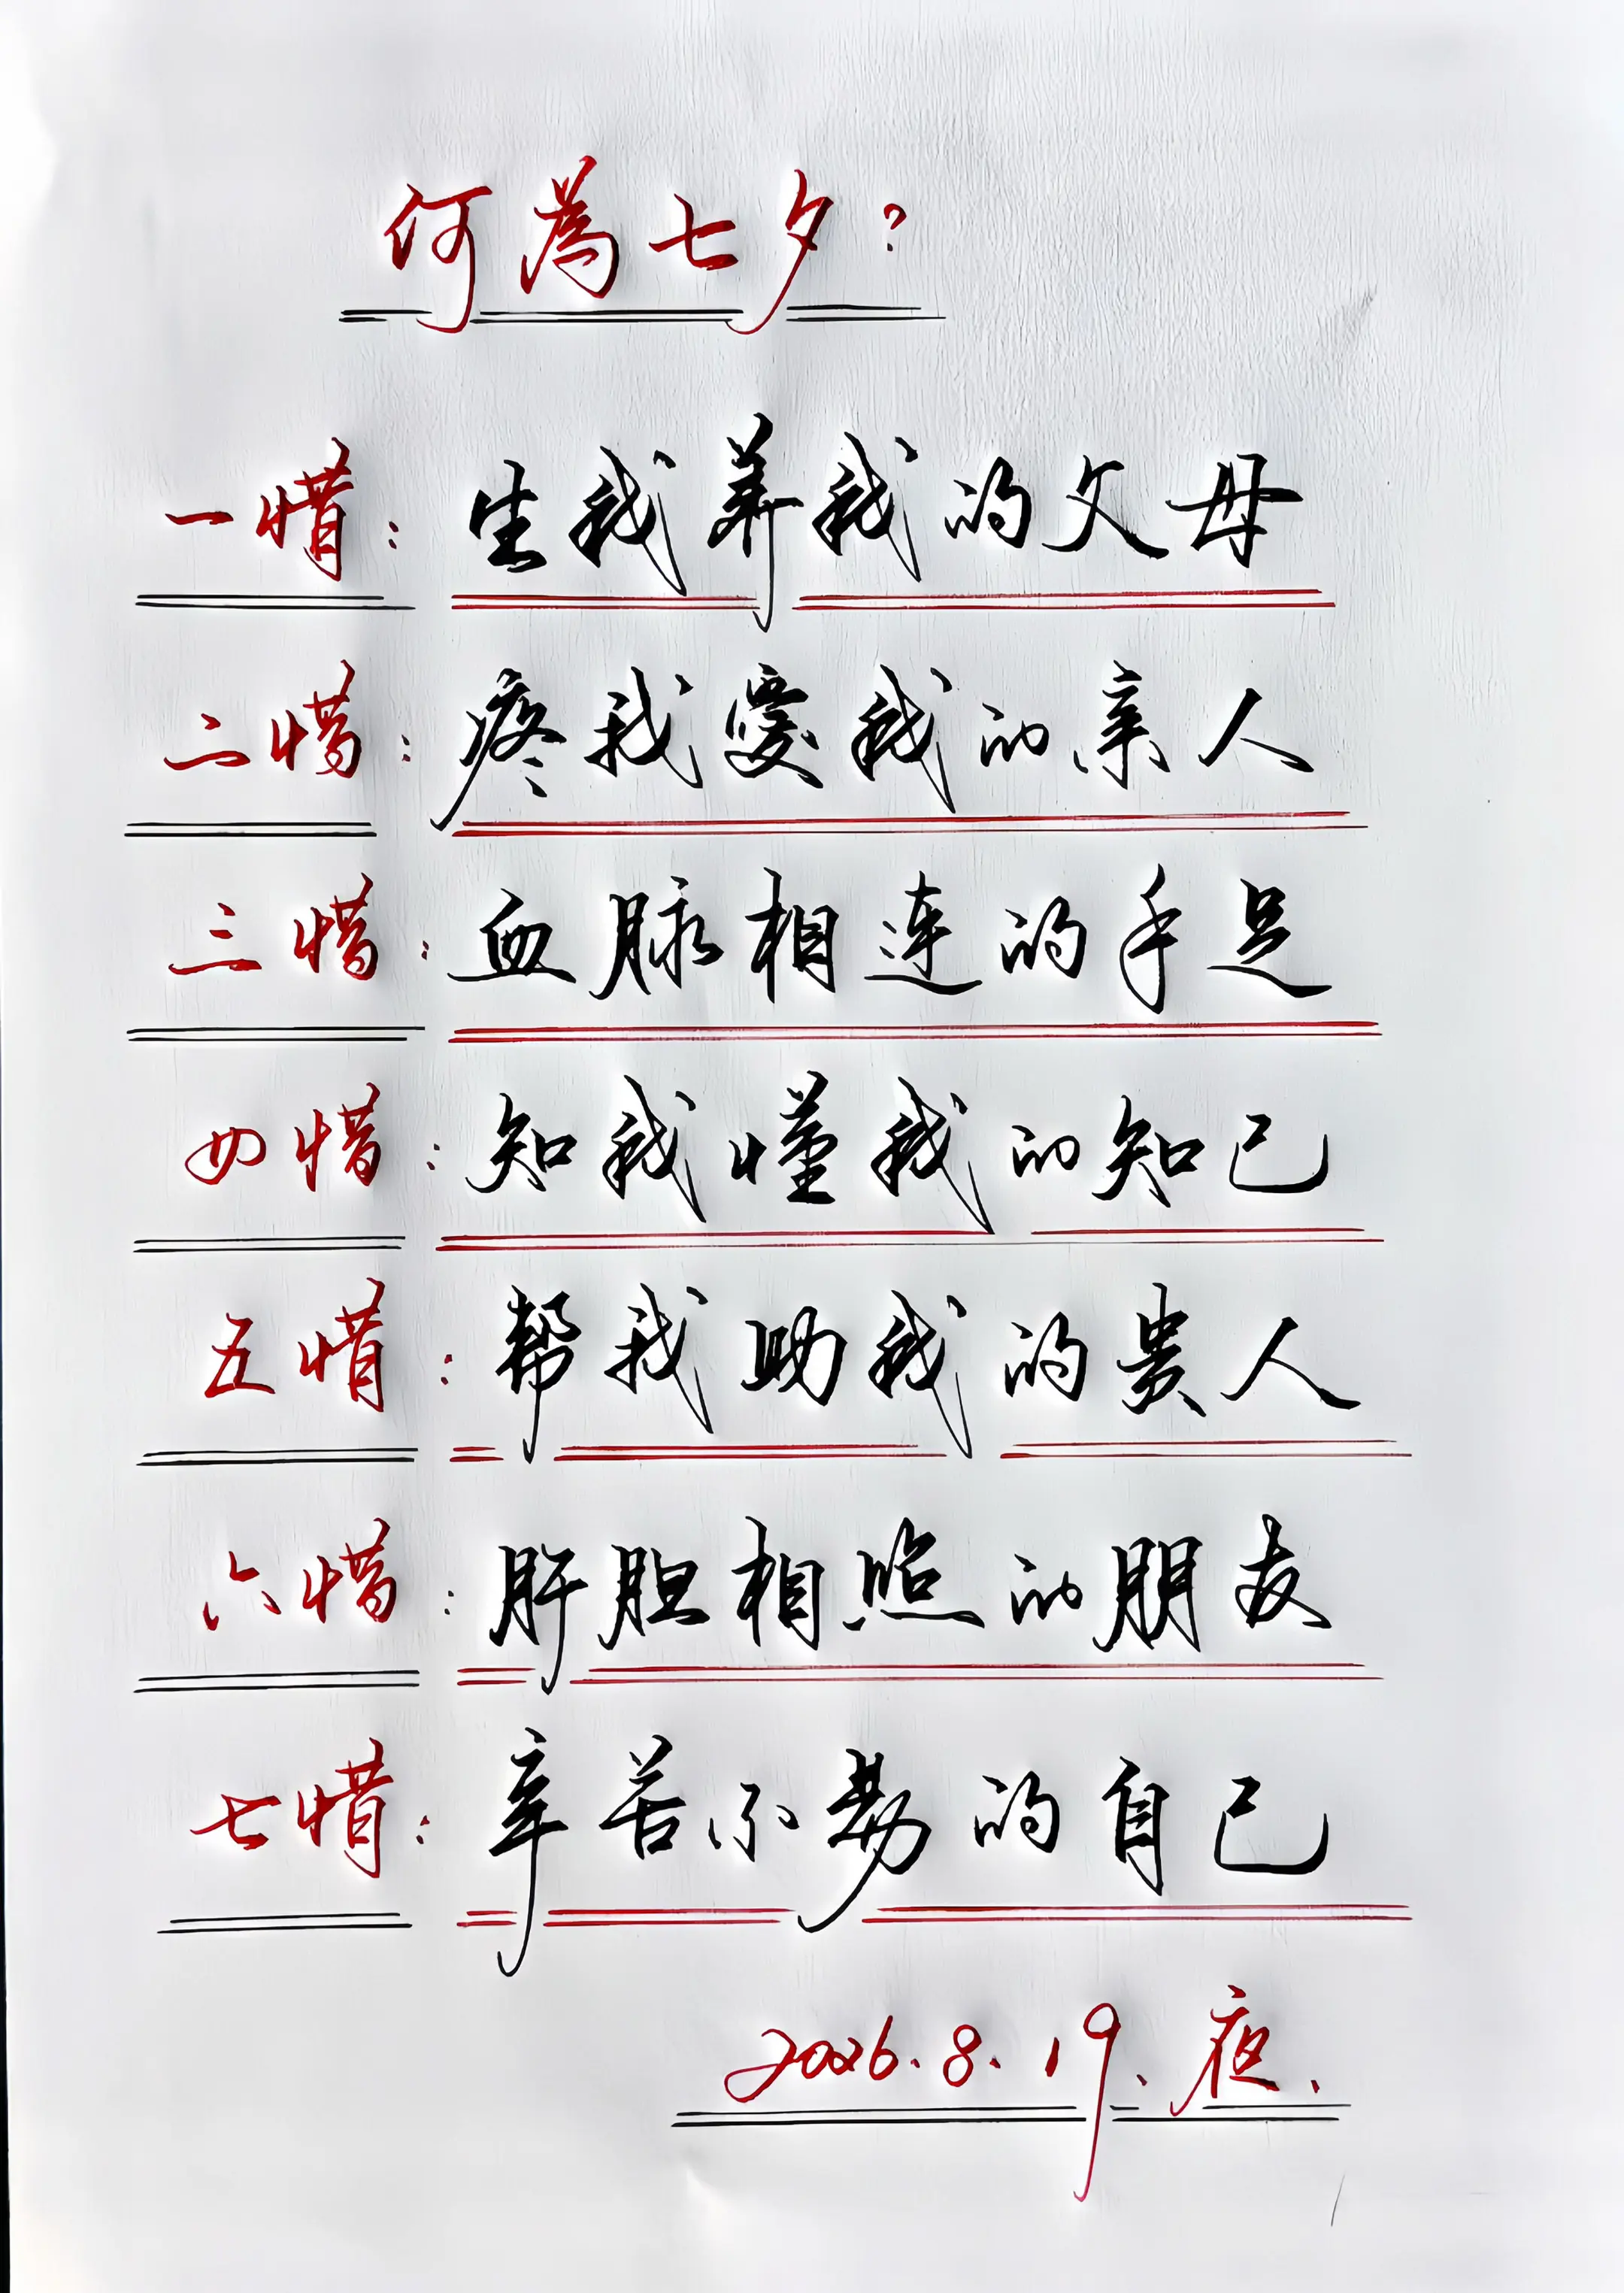 何為七夕？
一惜：生我养我的父母
二惜：疼我愛我的亲人
三惜：血脉相连的手足
四惜：知我懂我的知己
五惜：帮我助我的贵人
六惜：肝胆相照的朋友
七惜：辛苦不易的自己
2026.8.19.夜.